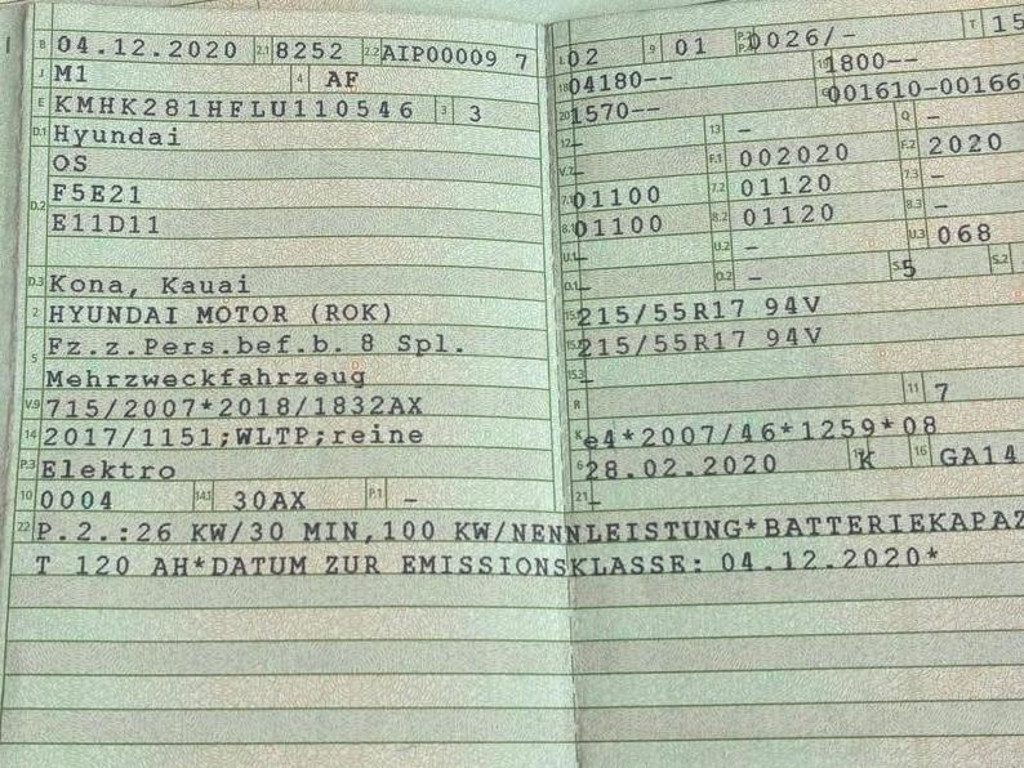 B 04.12.2020 2.1 8252 2.2 AIP00009 7
J M1 4 AF
E KMHK281HFLU110546 3 3
D.1 Hyundai
OS
D.2 F5E21
E11D11
D.3 Kona, Kauai
2 HYUNDAI MOTOR (ROK)
5 Fz.z.Pers.bef.b. 8 Spl.
Mehrzweckfahrzeug
V.9 715/2007*2018/1832AX
14 2017/1151;WLTP;reine
P.3 Elektro
10 0004 14.1 30AX P.1 -
22 P.2.:26 KW/30 MIN,100 KW/NENNLEISTUNG*BATTERIEKAPAZ
T 120 AH*DATUM ZUR EMISSIONSKLASSE: 04.12.2020*
L 02 9 01 0026/- T 15
18 04180-- 19 1800--
20 1570-- G 001610-00166
12 - 13 - Q -
V.7 - F.1 002020 F.2 2020
7.1 01100 7.2 01120 7.3 -
8.1 01100 8.2 01120 8.3 -
U.1 - U.2 - U.3 068
O.1 - O.2 - S.1 5 S.2
15.1 215/55R17 94V
15.2 215/55R17 94V
15.3 -
R - 11 7
K e4*2007/46*1259*08
6 28.02.2020 17 K 16 GA14
21 -